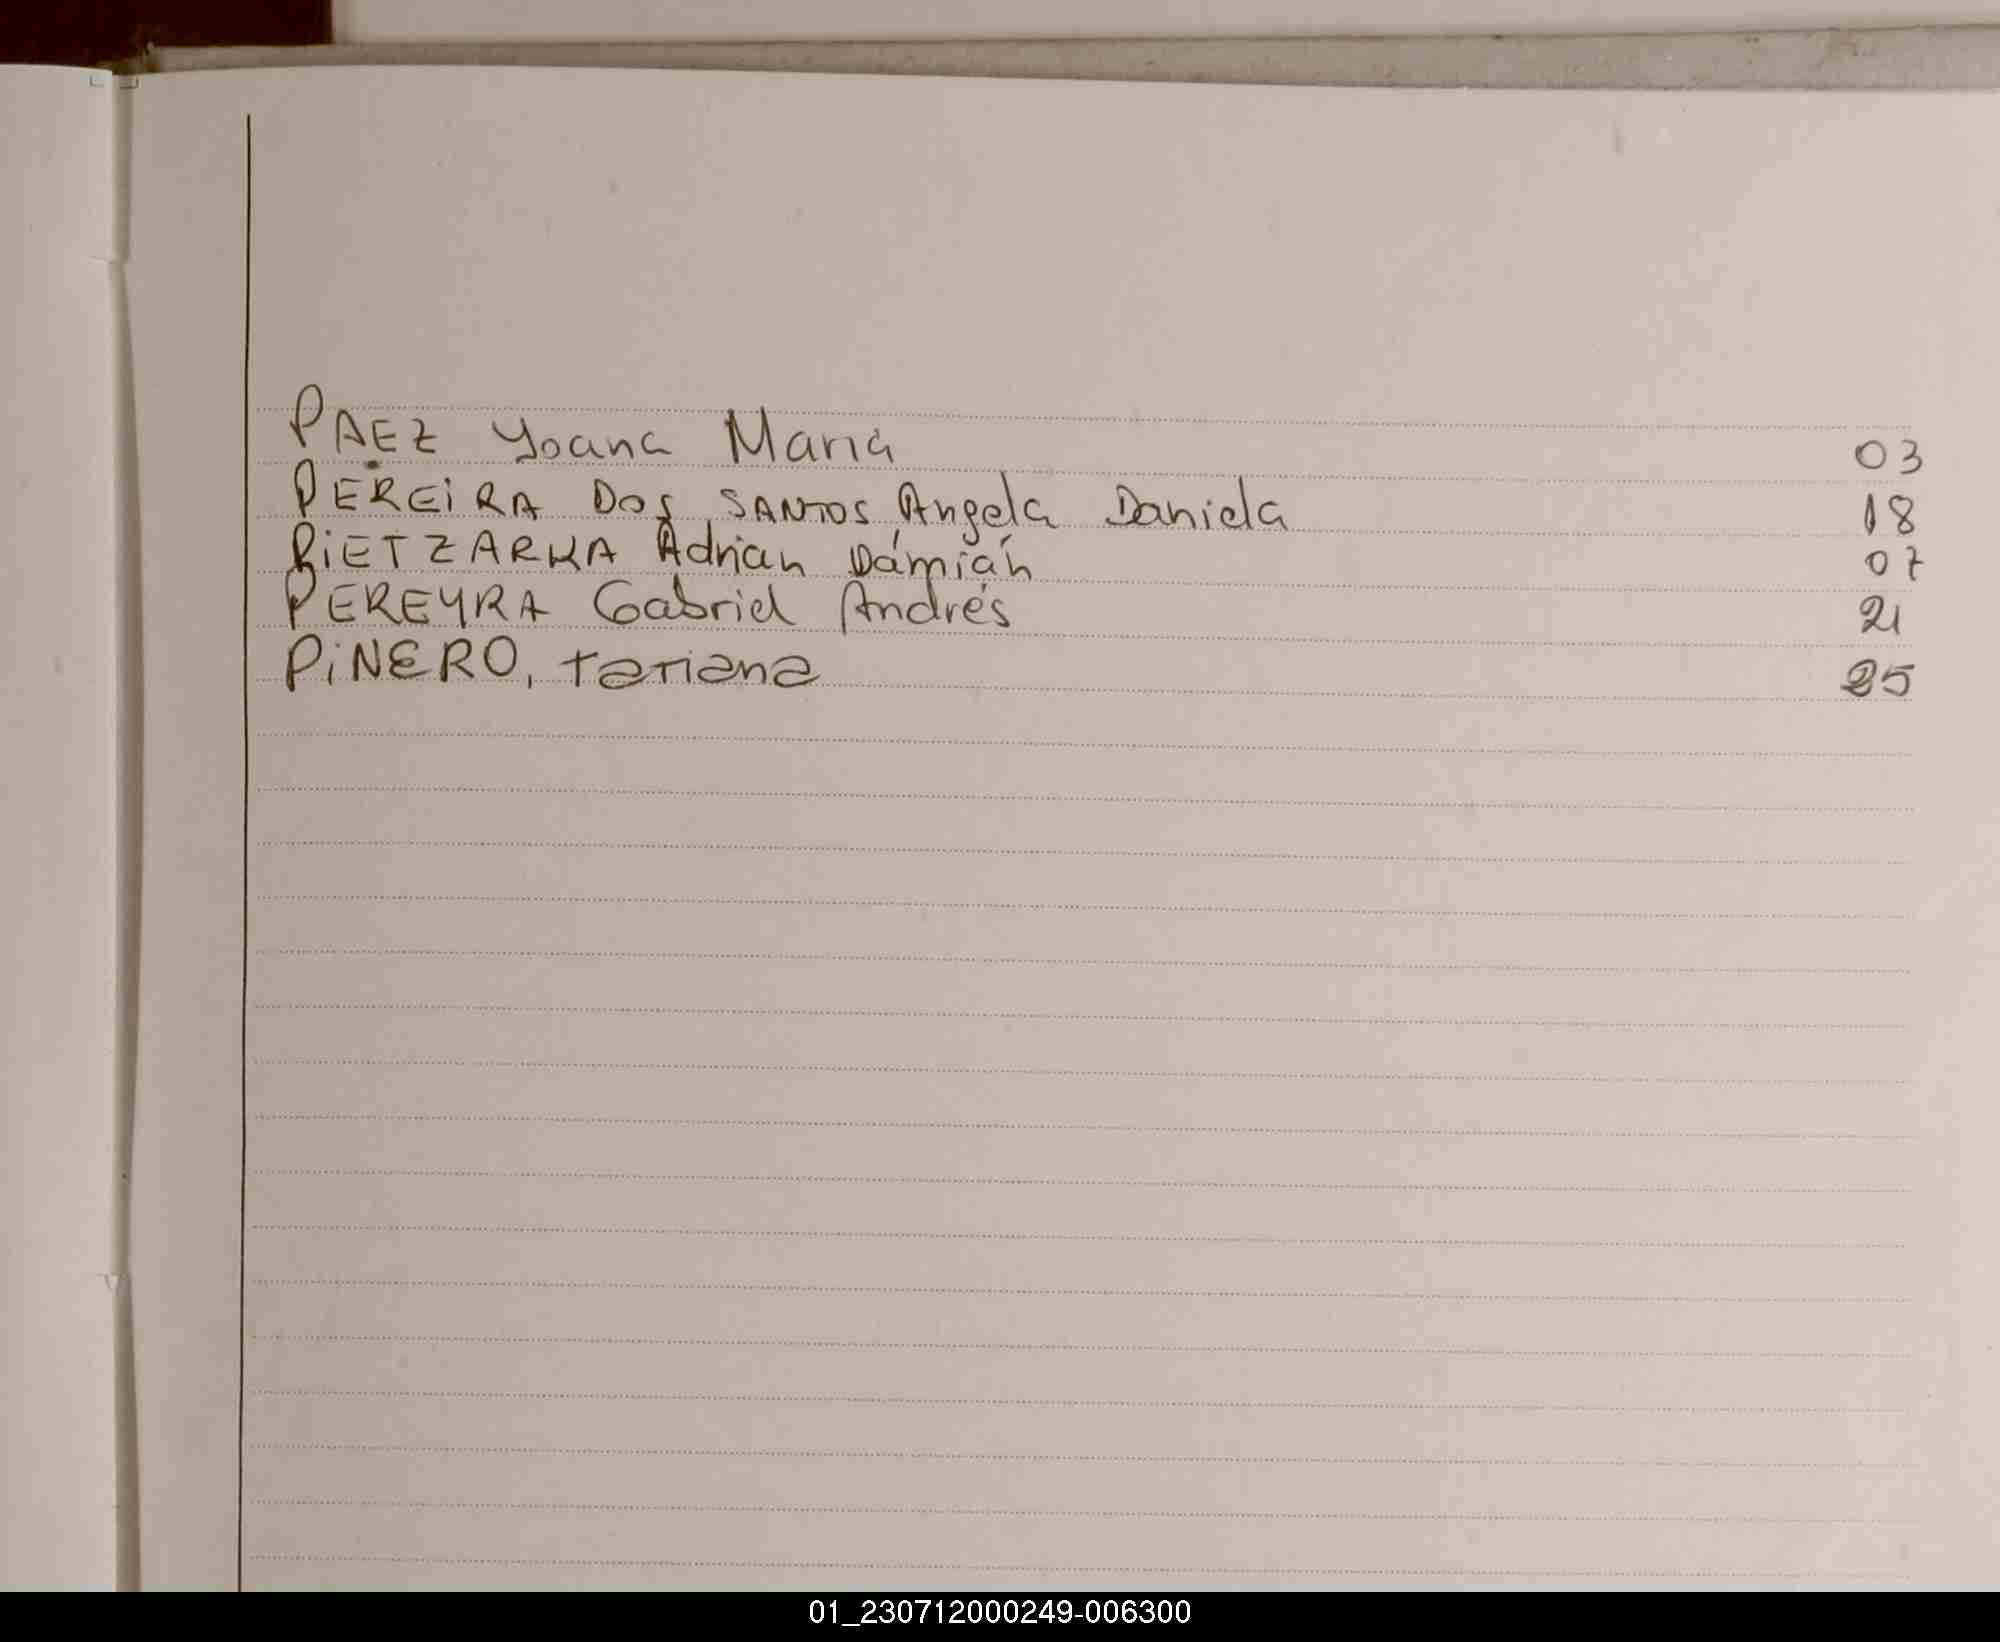 PAEZ Yoana Maria 03
PEREIRA DOS SANTOS Angela Daniela 18
PIETZARKA Adrian Damián 07
PEREYRA Gabriel Andrés 21
PiNERO, Tatiana 25
01_230712000249-006300